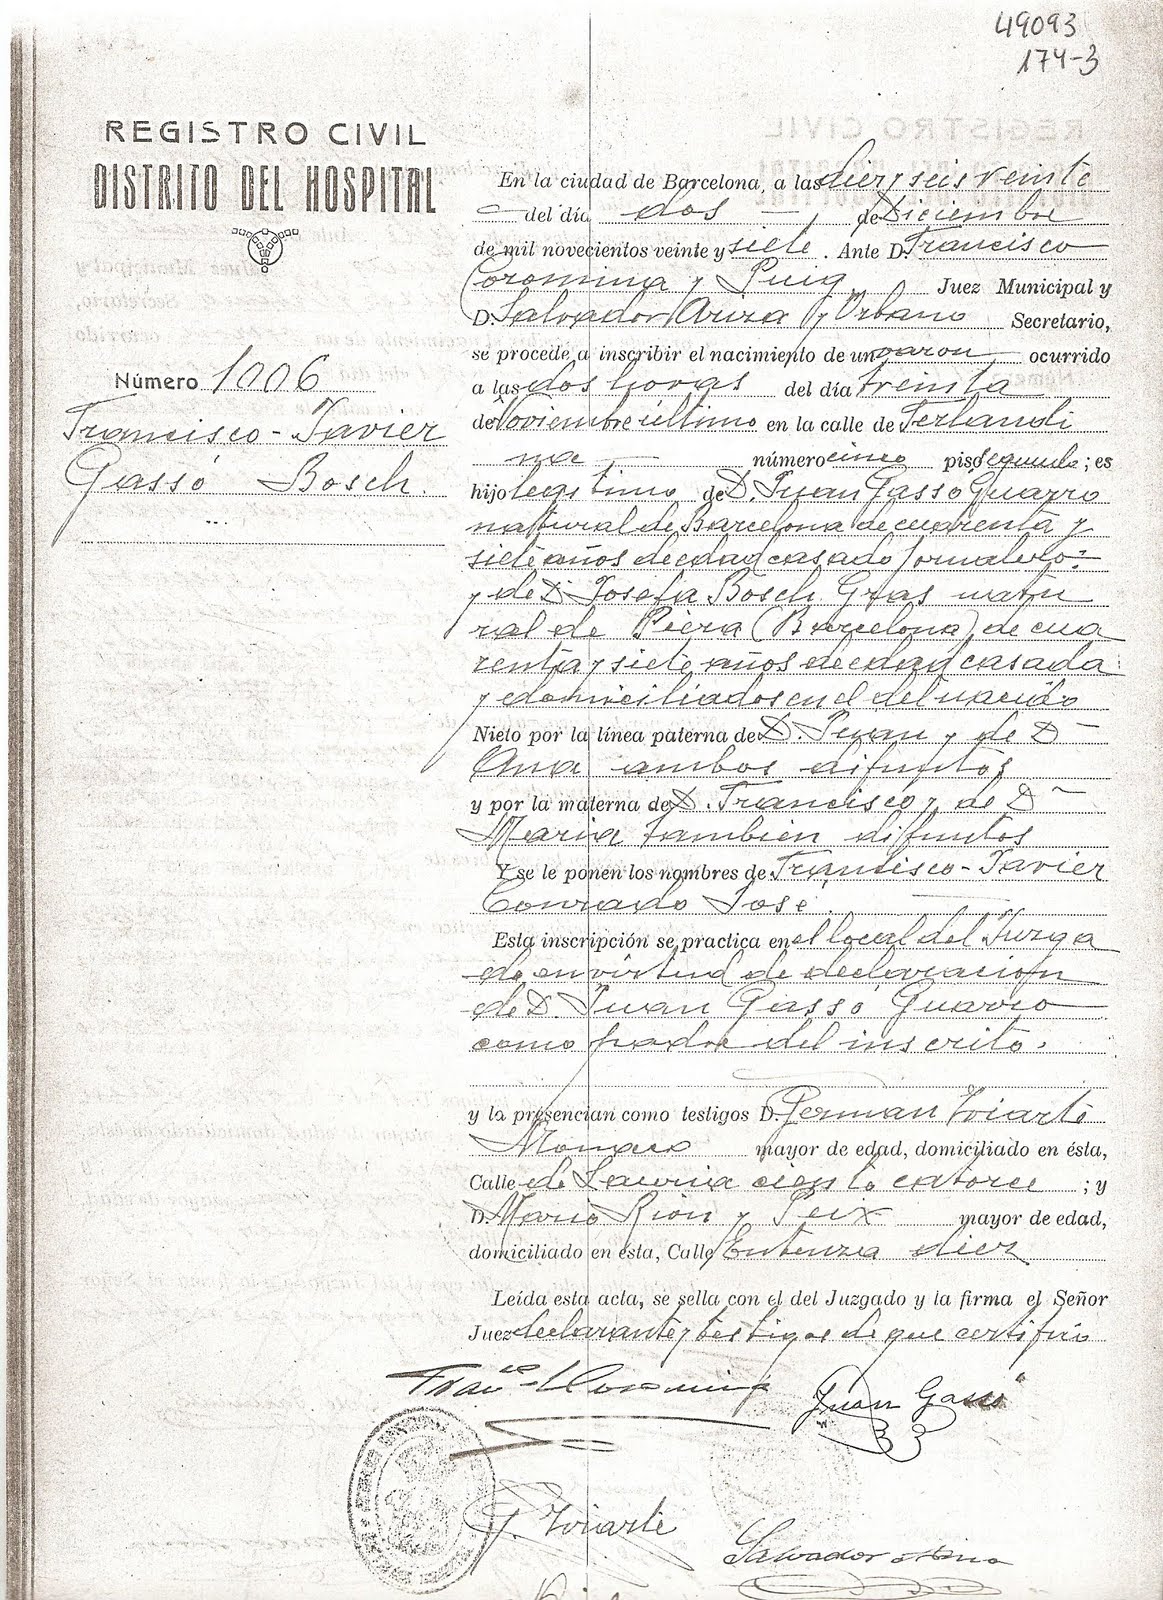 49093
174-3
REGISTRO CIVIL
DISTRITO DEL HOSPITAL
Número 1006
Francisco-Javier
Gassó Bosch.
En la ciudad de Barcelona, a las diez y seis veinte
del día dos de Diciembre
de mil novecientos veinte y siete. Ante D. Francisco
Coromina y Puig Juez Municipal y
D. Salvador Ariza y Urbano Secretario,
se procede a inscribir el nacimiento de un varon ocurrido
a las dos horas del día treinta
de Noviembre último en la calle de Ferlandi
na número cinco piso segundo; es
hijo legitimo de D. Juan Gassó Guarro
natural de Barcelona de cuarenta y
siete años de edad casado jornalero:
y de Dª Josefa Bosch Gras natu
ral de Piera (Barcelona) de cua
renta y siete años de edad casada
y domiciliados en el del nacido
Nieto por la línea paterna de D. Juan y de Dª
Ana ambos difuntos
y por la materna de D. Francisco y de Dª
Maria tambien difuntos
Y se le ponen los nombres de Francisco-Javier
Conrado José.
Esta inscripción se practica en el local del Juzga
do en virtud de declaracion
de D. Juan Gassó Guarro
como padre del inscrito.
y la presencian como testigos D. German Iriarte
mayor de edad, domiciliado en ésta,
Calle de Lauria ciento catorce; y
D. Mario Rion y Peix mayor de edad,
domiciliado en esta, Calle Entenza diez
Leída esta acta, se sella con el del Juzgado y la firma el Señor
Juez declarante y testigos de que certifico
Franco Coromina
Juan Gassó
G. Iriarte
Salvador Ariza